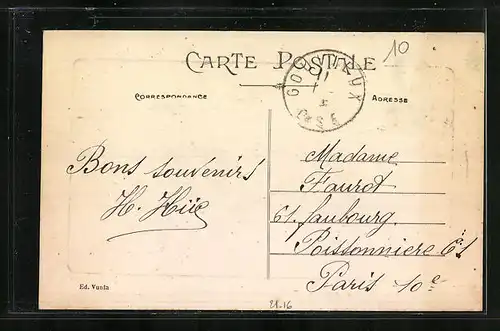 10
CARTE POSTALE
CORRESPONDANCE
ADRESSE
Bons souvenirs
H. Hüe
Madame
Faurot
61. faubourg
Poissonniere 61
Paris 10e
Ed. Vunla
21.16